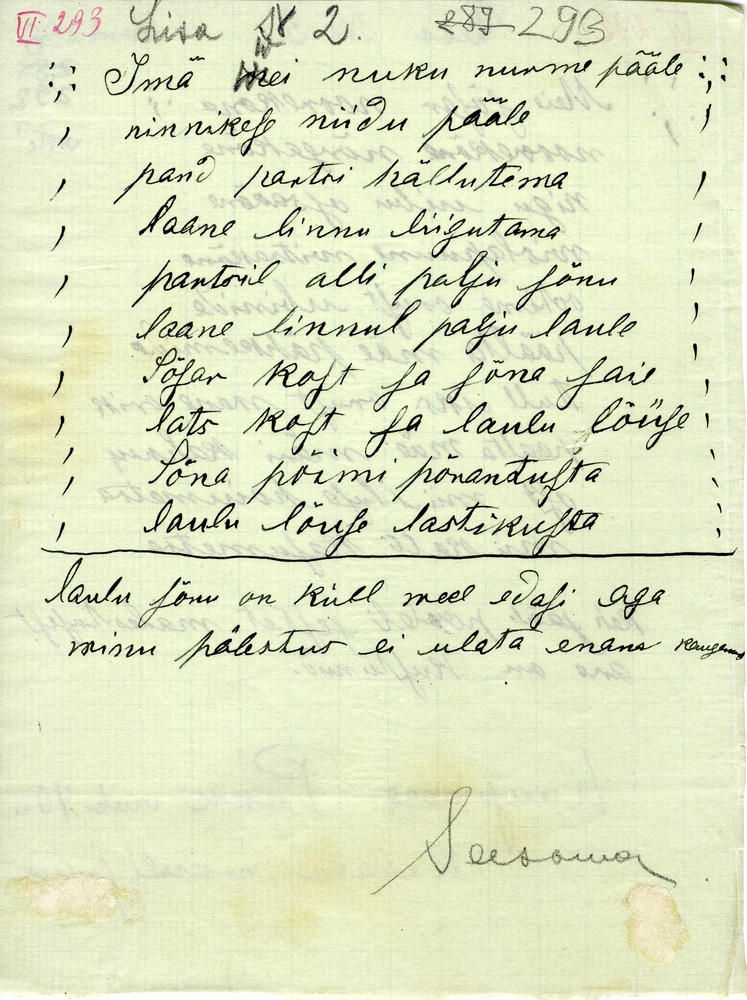 VI 293 Lisa № 2. 287 293
:,: Imä wei nuku nurme pääle :,:
, ninnikese niidu pääle ,
, pand partsi hällutema ,
, laane linnu liigutama ,
, partsil olli palju sõnu ,
, laane linnul palju laule ,
, Sõsar kost ja sõna saie ,
, lats kost ja laulu lõüse ,
, Sõna põimi põrandusta ,
, laulu lõuse lastikusta ,
laulu sõnu on küll weel edasi aga
minu pälestus ei ulata enam kaugemale